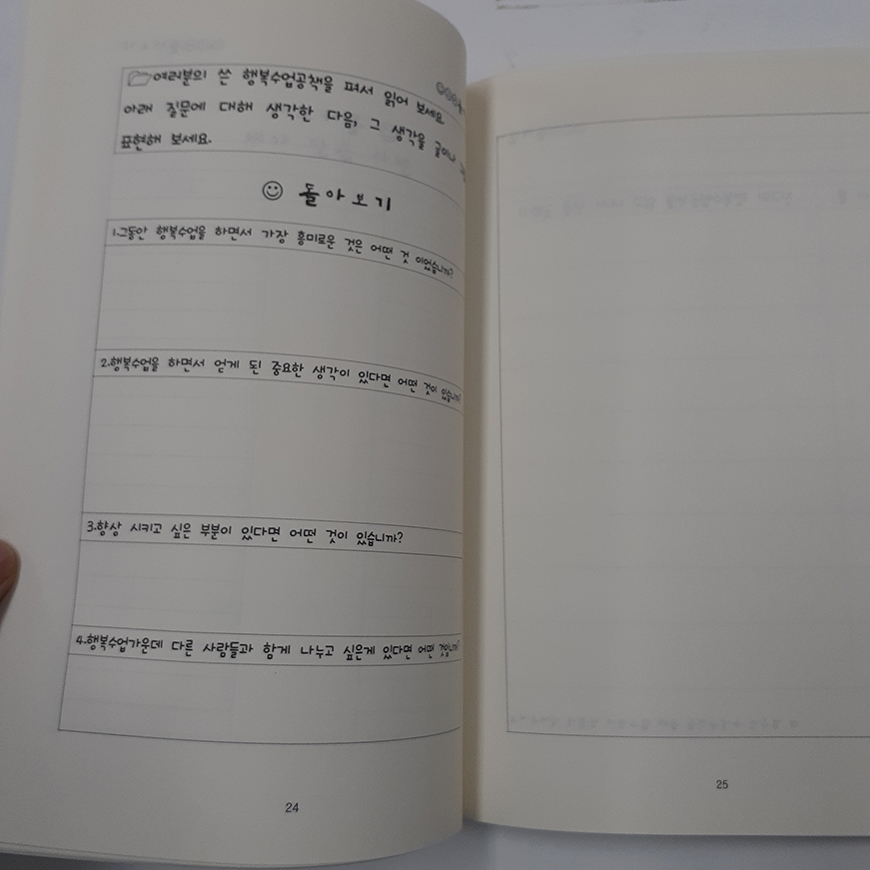 여러분의 쓴 행복수업공책을 펴서 읽어 보세요
아래 질문에 대해 생각한 다음, 그 생각을 글이나
표현해 보세요.
돌아보기
1.그동안 행복수업을 하면서 가장 흥미로운 것은 어떤 것 이었습니까?
2.행복수업을 하면서 얻게 된 중요한 생각이 있다면 어떤 것이 있습니까?
3.향상 시키고 싶은 부분이 있다면 어떤 것이 있습니까?
4.행복수업가운데 다른 사람들과 함게 나누고 싶은게 있다면 어떤 것입니까?
24
25